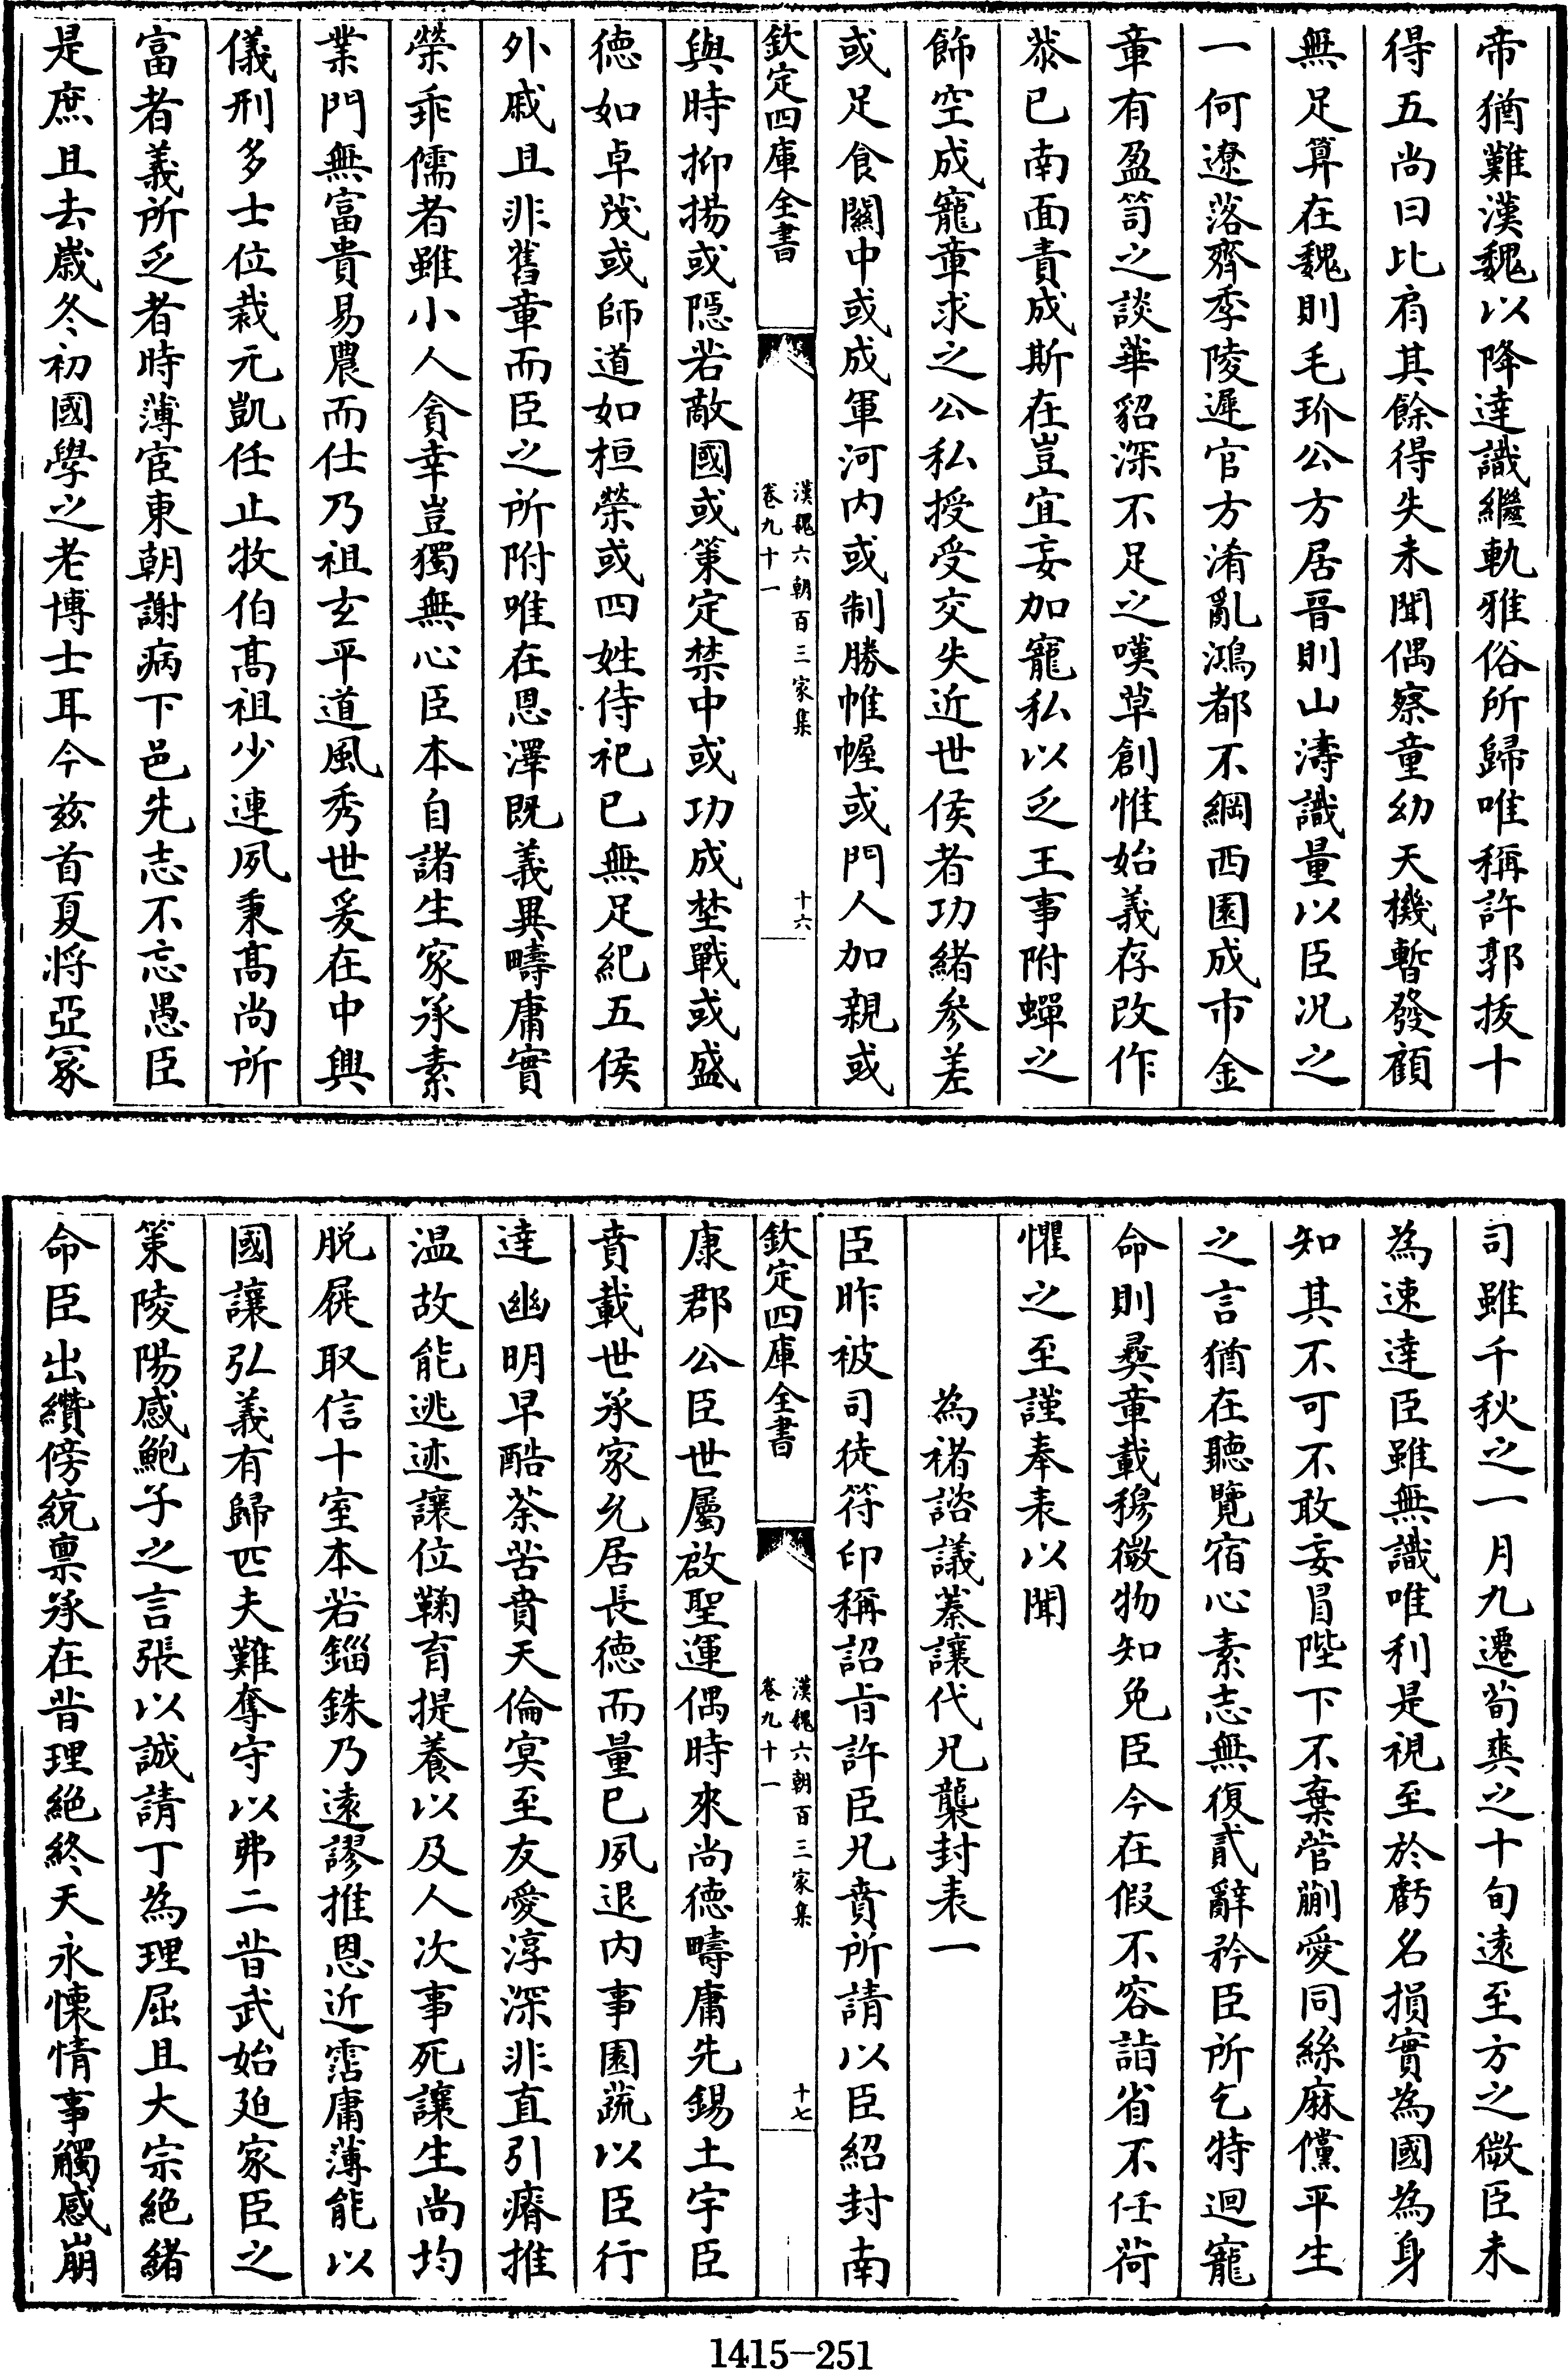 帝猶難漢魏以降達識繼軌雅俗所歸唯稱許郭拔十
得五尚曰比肩其餘得失未聞偶察童幼天機暫發顧
無足算在魏則毛玠公方居晉則山濤識量以臣況之
一何遼落齊季陵遲官方淆亂鴻都不綱西園成市金
章有盈笥之談華貂深不足之嘆草創惟始義存改作
恭已南面責成斯在豈宜妄加寵私以乏王事附蟬之
飾空成寵章求之公私授受交失近世侯者功緒參差
或足食關中或成軍河內或制勝帷幄或門人加親或
欽定四庫全書
漢魏六朝百三家集
卷九十一
十六
與時抑揚或隱若敵國或策定禁中或功成埜戰或盛
德如卓茂或師道如桓榮或四姓侍祀已無足紀五侯
外戚且非舊章而臣之所附唯在恩澤既義異疇庸實
榮乖儒者雖小人貪幸豈獨無心臣本自諸生家承素
業門無富貴易農而仕乃祖玄平道風秀世爰在中興
儀刑多士位裁元凱任止牧伯高祖少連夙秉高尚所
富者義所乏者時薄宦東朝謝病下邑先志不忘愚臣
是庶且去歲冬初國學之老博士耳今茲首夏將亞冢
司雖千秋之一月九遷荀爽之十旬遠至方之微臣未
為速達臣雖無識唯利是視至於虧名損實為國為身
知其不可不敢妄冒陛下不棄菅蒯愛同絲麻儻平生
之言猶在聽覽宿心素志無復貳辭矜臣所乞特迴寵
命則彝章載穆微物知免臣今在假不容詣省不任荷
懼之至謹奉表以聞
為褚諮議蓁讓代兄襲封表一
臣昨被司徒符印稱詔旨許臣兄賁所請以臣紹封南
欽定四庫全書
漢魏六朝百三家集
卷九十一
十七
康郡公臣世屬啟聖運偶時來尚德疇庸先錫土宇臣
賁載世承家允居長德而量已夙退內事園蔬以臣行
達幽明早酷荼苦賁天倫冥至友愛淳深非直引瘠推
温故能逃迹讓位鞠育提養以及人次事死讓生尚均
脫屣取信十室本若錙銖乃遠謬推恩近霑庸薄能以
國讓弘義有歸匹夫難奪守以弗二昔武始廹家臣之
策陵陽感鮑子之言張以誠請丁為理屈且大宗絕緒
命臣出纘傍統稟承在昔理絕終天永懷情事觸感崩
1415-251